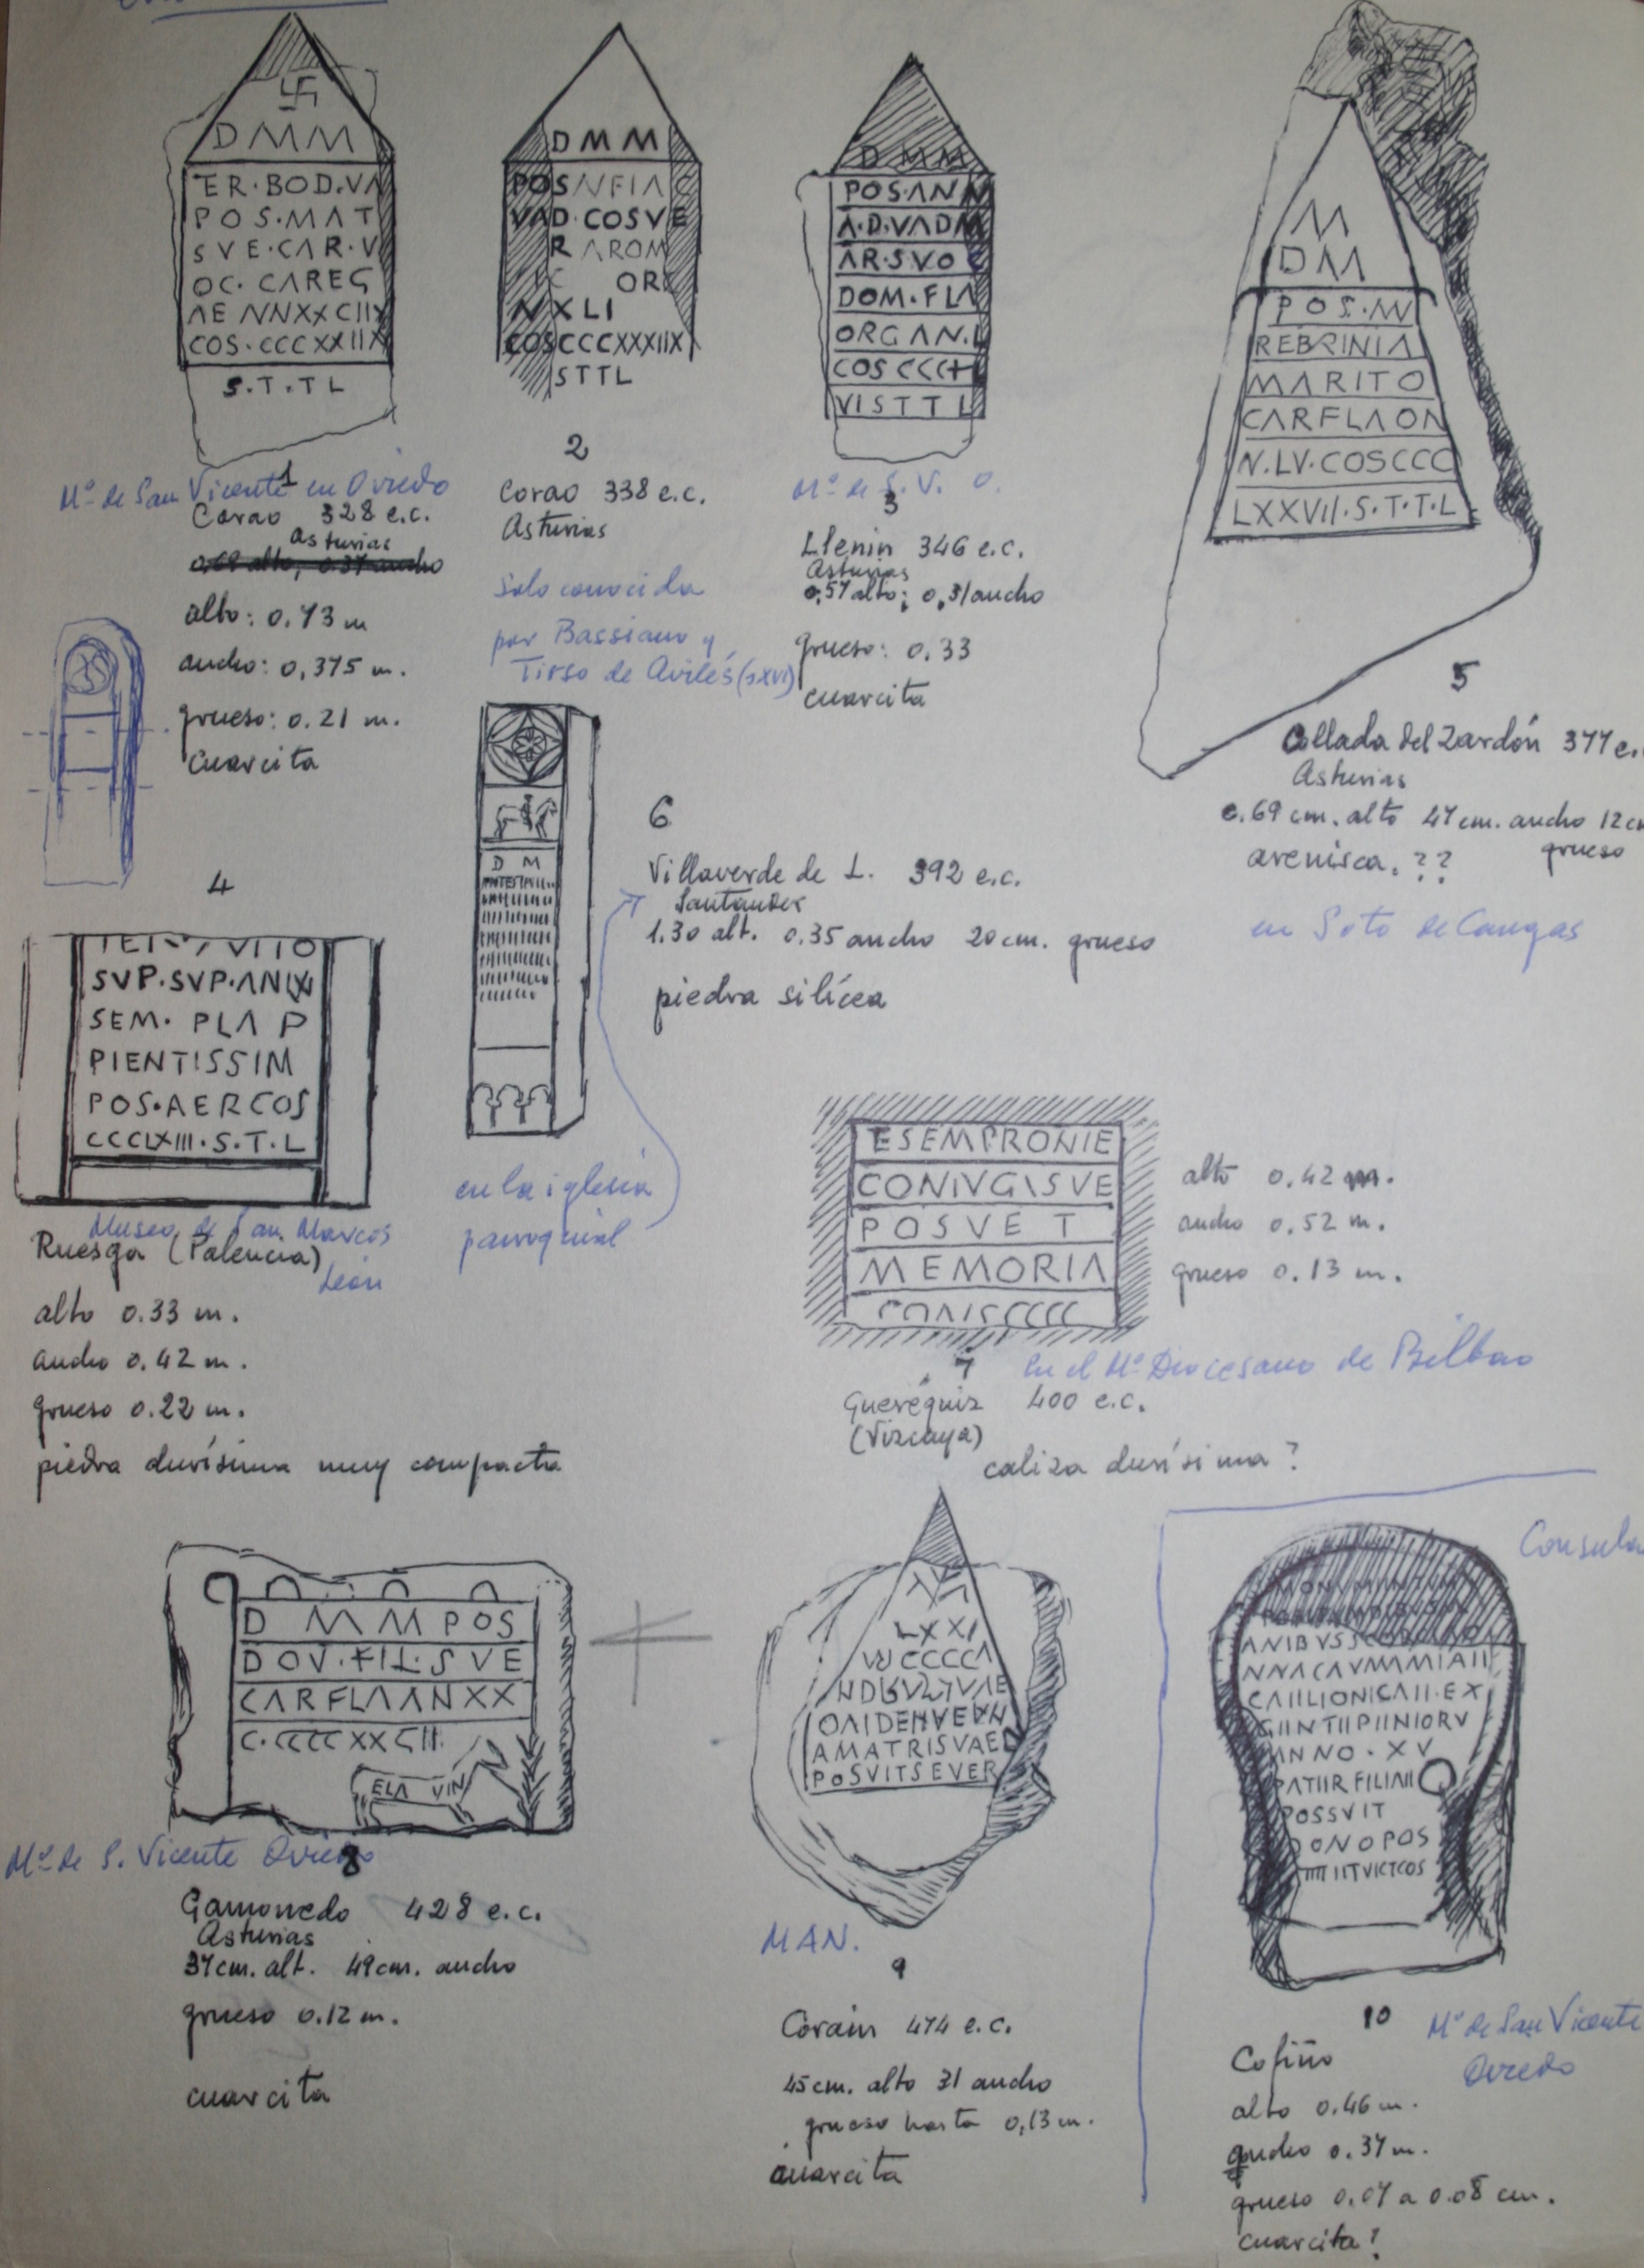 D M M
ER·BOD·VA
POS·MAT
SVE·CAR·V
OC·CAREG
AE NNXXCIIX
COS·CCCXXIIX
S·T·T L
1
Mº de San Vicente en Oviedo
Corao 328 e.c.
Asturias
0,69 alto, 0.37 ancho
alto: 0.73 m
ancho: 0,375 m.
grueso: 0.21 m.
cuarcita
D M M
POSNFIAC
VAD·COSVE
R AROM
C ORC
NXLI
COSCCCXXXIIX
STTL
2
Corao 338 e.c.
Asturias
Solo conocida
por Bassiano y
Tirso de Avilés (sXVI)
D MM
POS·ANN
A·D·VADM
AR·SVO C
DOM·FLA
ORGAN·L
COS CCC+L
VISTTL
Mº de S.V. O.
3
Llenin 346 e.c.
Asturias
0,57 alto; 0,31 ancho
grueso: 0.33
cuarcita
M
DM
POS·NN
REBRINIA
MARITO
CARFLAON
N.LV·COSCCC
LXXVII·S·T·T·L
5
Collada del Zardón 377 e.
Asturias
0.69 cm. alto 47 cm. ancho 12 cm
grueso
arenisca. ??
en Soto de Cangas
4
SVP·SVP·ANIXI
SEM· PLA P
PIENTISSIM
POS·AERCOS
CCCLXIII·S·T·L
Museo de San Marcos
León
Ruesga (Palencia)
alto 0.33 m.
ancho 0.42 m.
grueso 0.22 m.
piedra durísima muy compacta
D M
6
Villaverde de L. 392 e.c.
Santander
1.30 alt. 0.35 ancho 20 cm. grueso
piedra silícea
en la iglesia
parroquial
ESEMPRONIE
CONIVGISVE
POSVE T
MEMORIA
CONSCCCC
alto 0.42 m.
ancho 0.52 m.
grueso 0.13 m.
7
En el Mº Diocesano de Bilbao
Gueréquiz 400 e.c.
(Vizcaya)
caliza durísima?
D M M POS
DOV·FIL·SVE
CARFLAANXX
C·CCCCXXCII·
ELA VIN
Mº de S. Vicente Oviedo
8
Gamonedo 428 e.c.
Asturias
37 cm. alt. 49 cm. ancho
grueso 0.12 m.
cuarcita
LXXI
VV CCCCA
OVIDENVEVAN
AMATRISVAED
POSVITSEVER
MAN.
9
Corain 474 e.c.
45 cm. alto 31 ancho
grueso hasta 0,13 m.
cuarcita
Consula
MONVMINTVM
ANIBVSSCO
NNACAVMMIAII
CAIILIONICAII·EX
GIINTIIPIINIORV
ANNO·XV
PATIIR FILIAII
POSSVIT
BONOPOS
IIIIIITVICTCOS
10
Mº de San Vicente
Oviedo
Cofiño
alto 0.46 m.
ancho 0.37 m.
grueso 0.07 a 0.08 cm.
cuarcita?